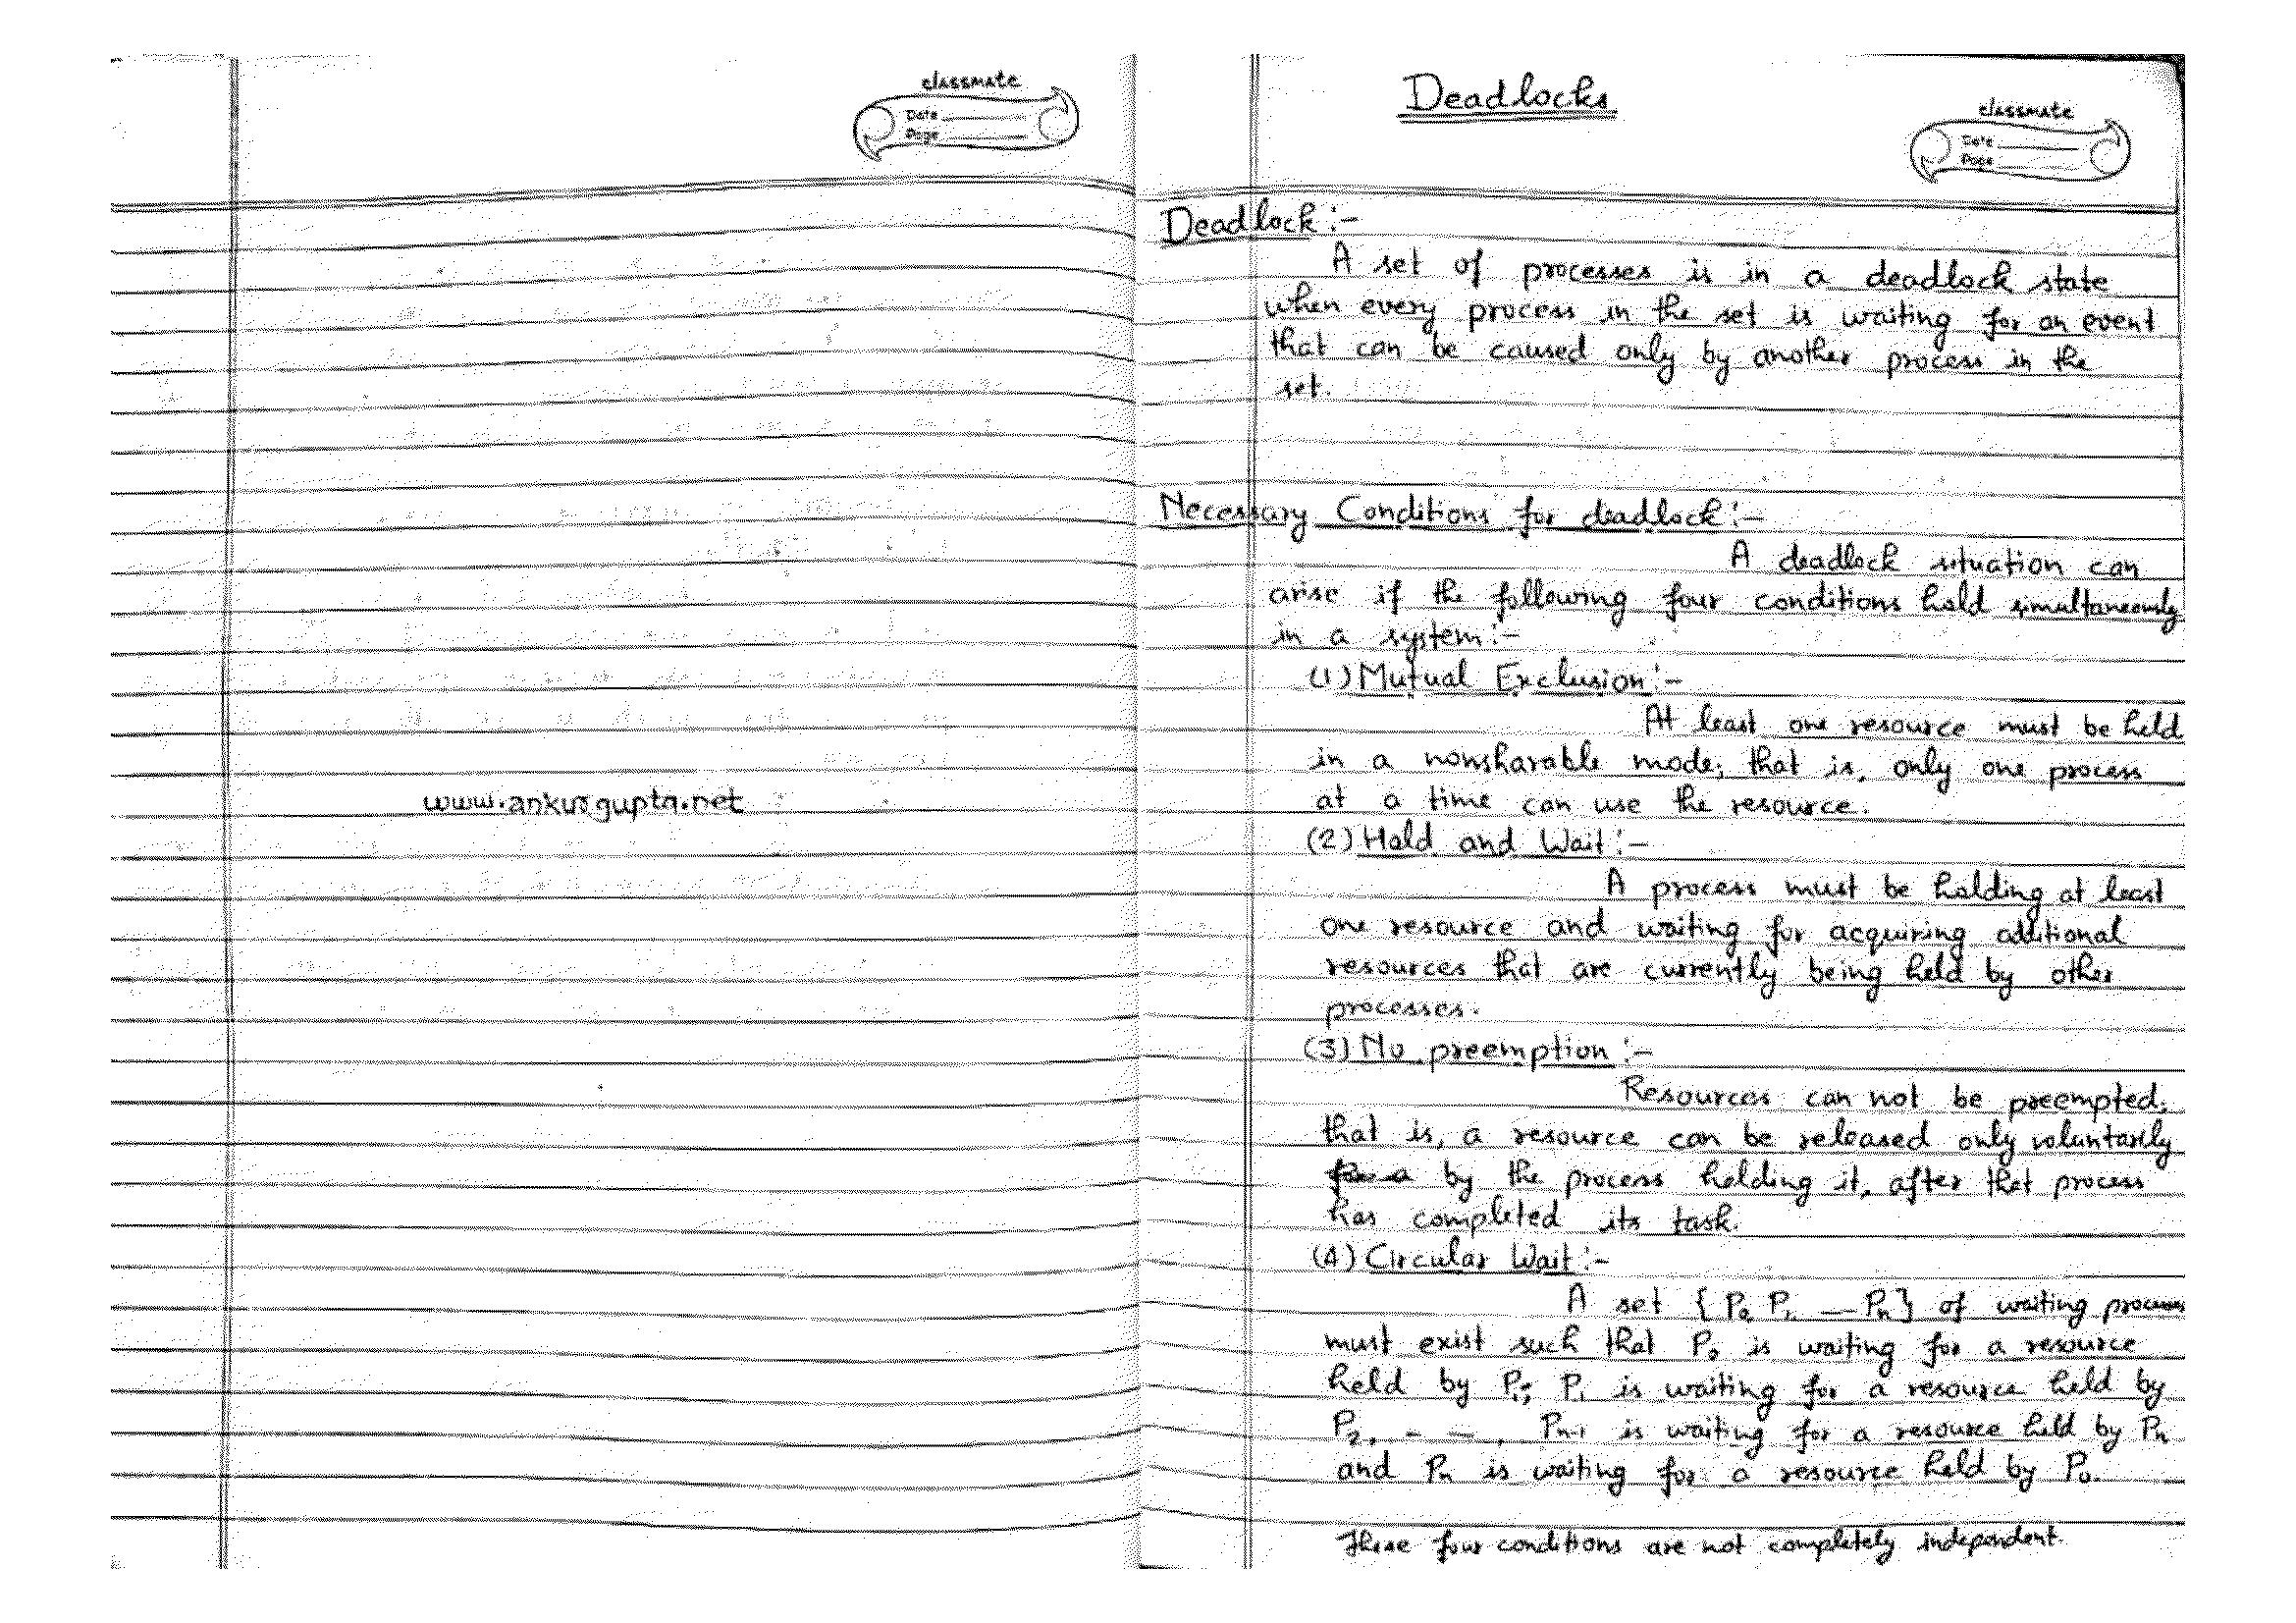 classmate
Date
Page
www.ankurgupta.net
Deadlocks
classmate
Date
Page
Deadlock:-
A set of processes is in a deadlock state
when every process in the set is waiting for an event
that can be caused only by another process in the
set.
Necessary Conditions for deadlock:-
A deadlock situation can
arise if the following four conditions hold simultaneously
in a system:-
(1) Mutual Exclusion:-
At least one resource must be held
in a nonsharable mode; that is, only one process
at a time can use the resource.
(2) Hold and Wait:-
A process must be holding at least
one resource and waiting for acquiring additional
resources that are currently being held by other
processes.
(3) No preemption:-
Resources can not be preempted;
that is, a resource can be released only voluntarily
by the process holding it, after that process
has completed its task.
(4) Circular Wait:-
A set {P₀ P₁, — Pₙ} of waiting process
must exist such that P₀ is waiting for a resource
held by P₁; P₁ is waiting for a resource held by
P₂, - —, Pₙ₋₁ is waiting for a resource held by Pₙ
and Pₙ is waiting for a resource held by P₀.
These four conditions are not completely independent.